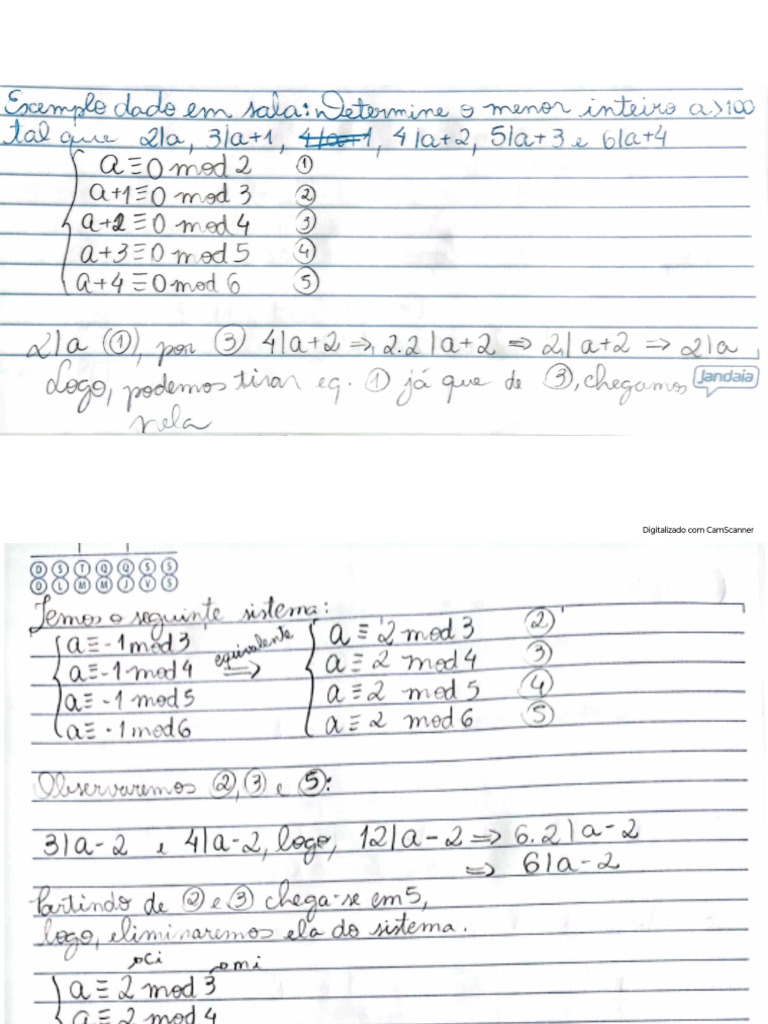 Exemplo dado em sala: Determine o menor inteiro a>100
tal que 2|a, 3|a+1, 4|a+2, 5|a+3 e 6|a+4
a≡0 mod 2 ①
a+1≡0 mod 3 ②
a+2≡0 mod 4 ③
a+3≡0 mod 5 ④
a+4≡0 mod 6 ⑤
2|a (①), por ③ 4|a+2 ⇒ 2.2|a+2 ⇒ 2|a+2 ⇒ 2|a
Logo, podemos tirar eq. ① já que de ③, chegamos
Jandaia
nela
Digitalizado com CamScanner
D S T Q Q S S
D L M M J V S
Temos o seguinte sistema:
a≡-1 mod 3 a≡2 mod 3 ②
a≡-1 mod 4 equivalente ⇒ a≡2 mod 4 ③
a≡-1 mod 5 a≡2 mod 5 ④
a≡-1 mod 6 a≡2 mod 6 ⑤
Observaremos ②, ③ e ⑤:
3|a-2 e 4|a-2, logo, 12|a-2 ⇒ 6.2|a-2
⇒ 6|a-2
Partindo de ② e ③ chega-se em 5,
logo, eliminaremos ela do sistema.
→ci →mi
a≡2 mod 3
a≡2 mod 4